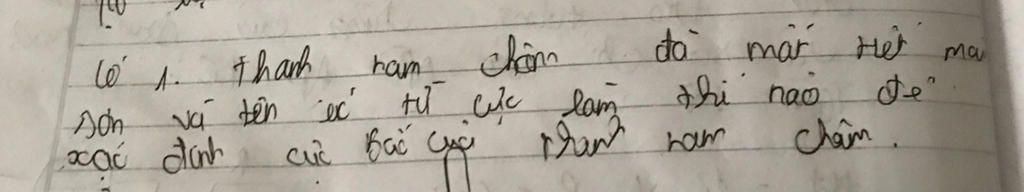 Có 1. thanh nam châm đã mất hết màu
sơn và tên các từ cực làm thế nào để
xác định cực Bắc của thanh nam châm.